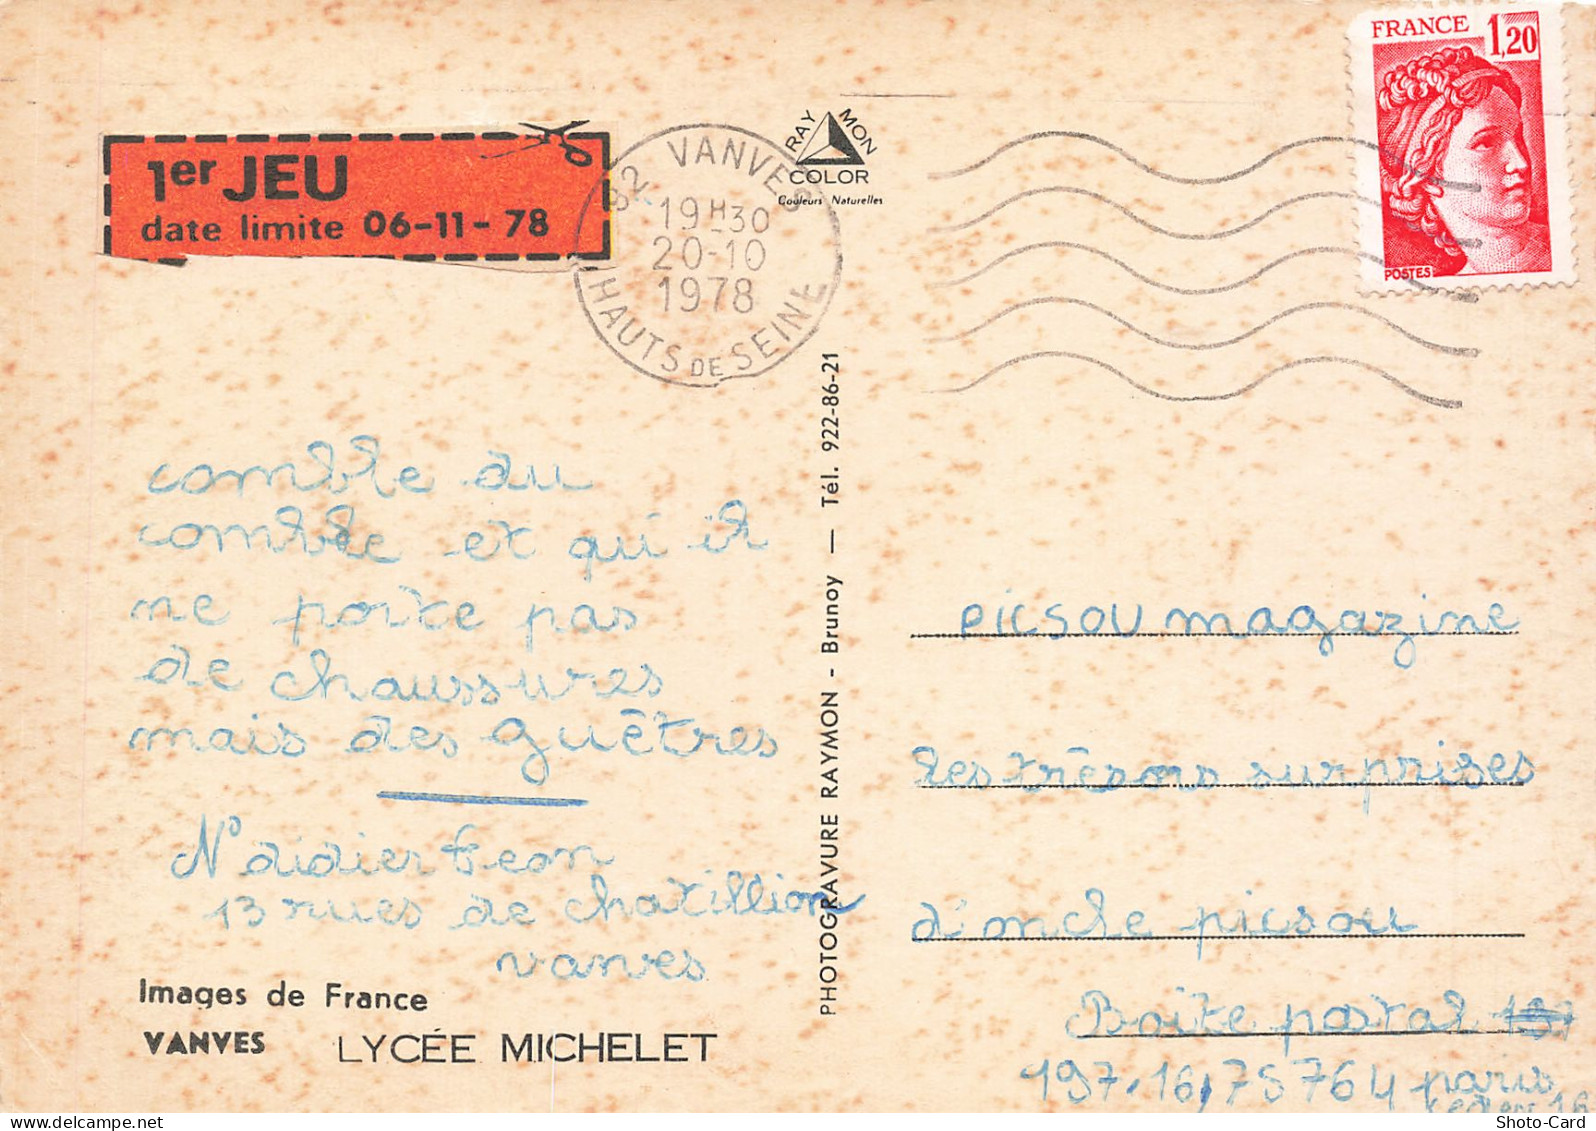 FRANCE 1,20
POSTES
1er JEU
date limite 06-11-78
92 VANVES
19H30
20-10
1978
HAUTS DE SEINE
RAYMON
COLOR
Couleurs Naturelles
comble du
comble et qui il
ne porte pas
de chaussures
mais des guêtres
N° didier
13 rues de chatillion
vanves
Images de France
VANVES LYCÉE MICHELET
PHOTOGRAVURE RAYMON - Brunoy — Tél. 922-86-21
PICSOU magazine
les trêsors surprises
d'oncle picsou
Boite postal
197.16, 75764 paris
cedex 16
Shoto-Card